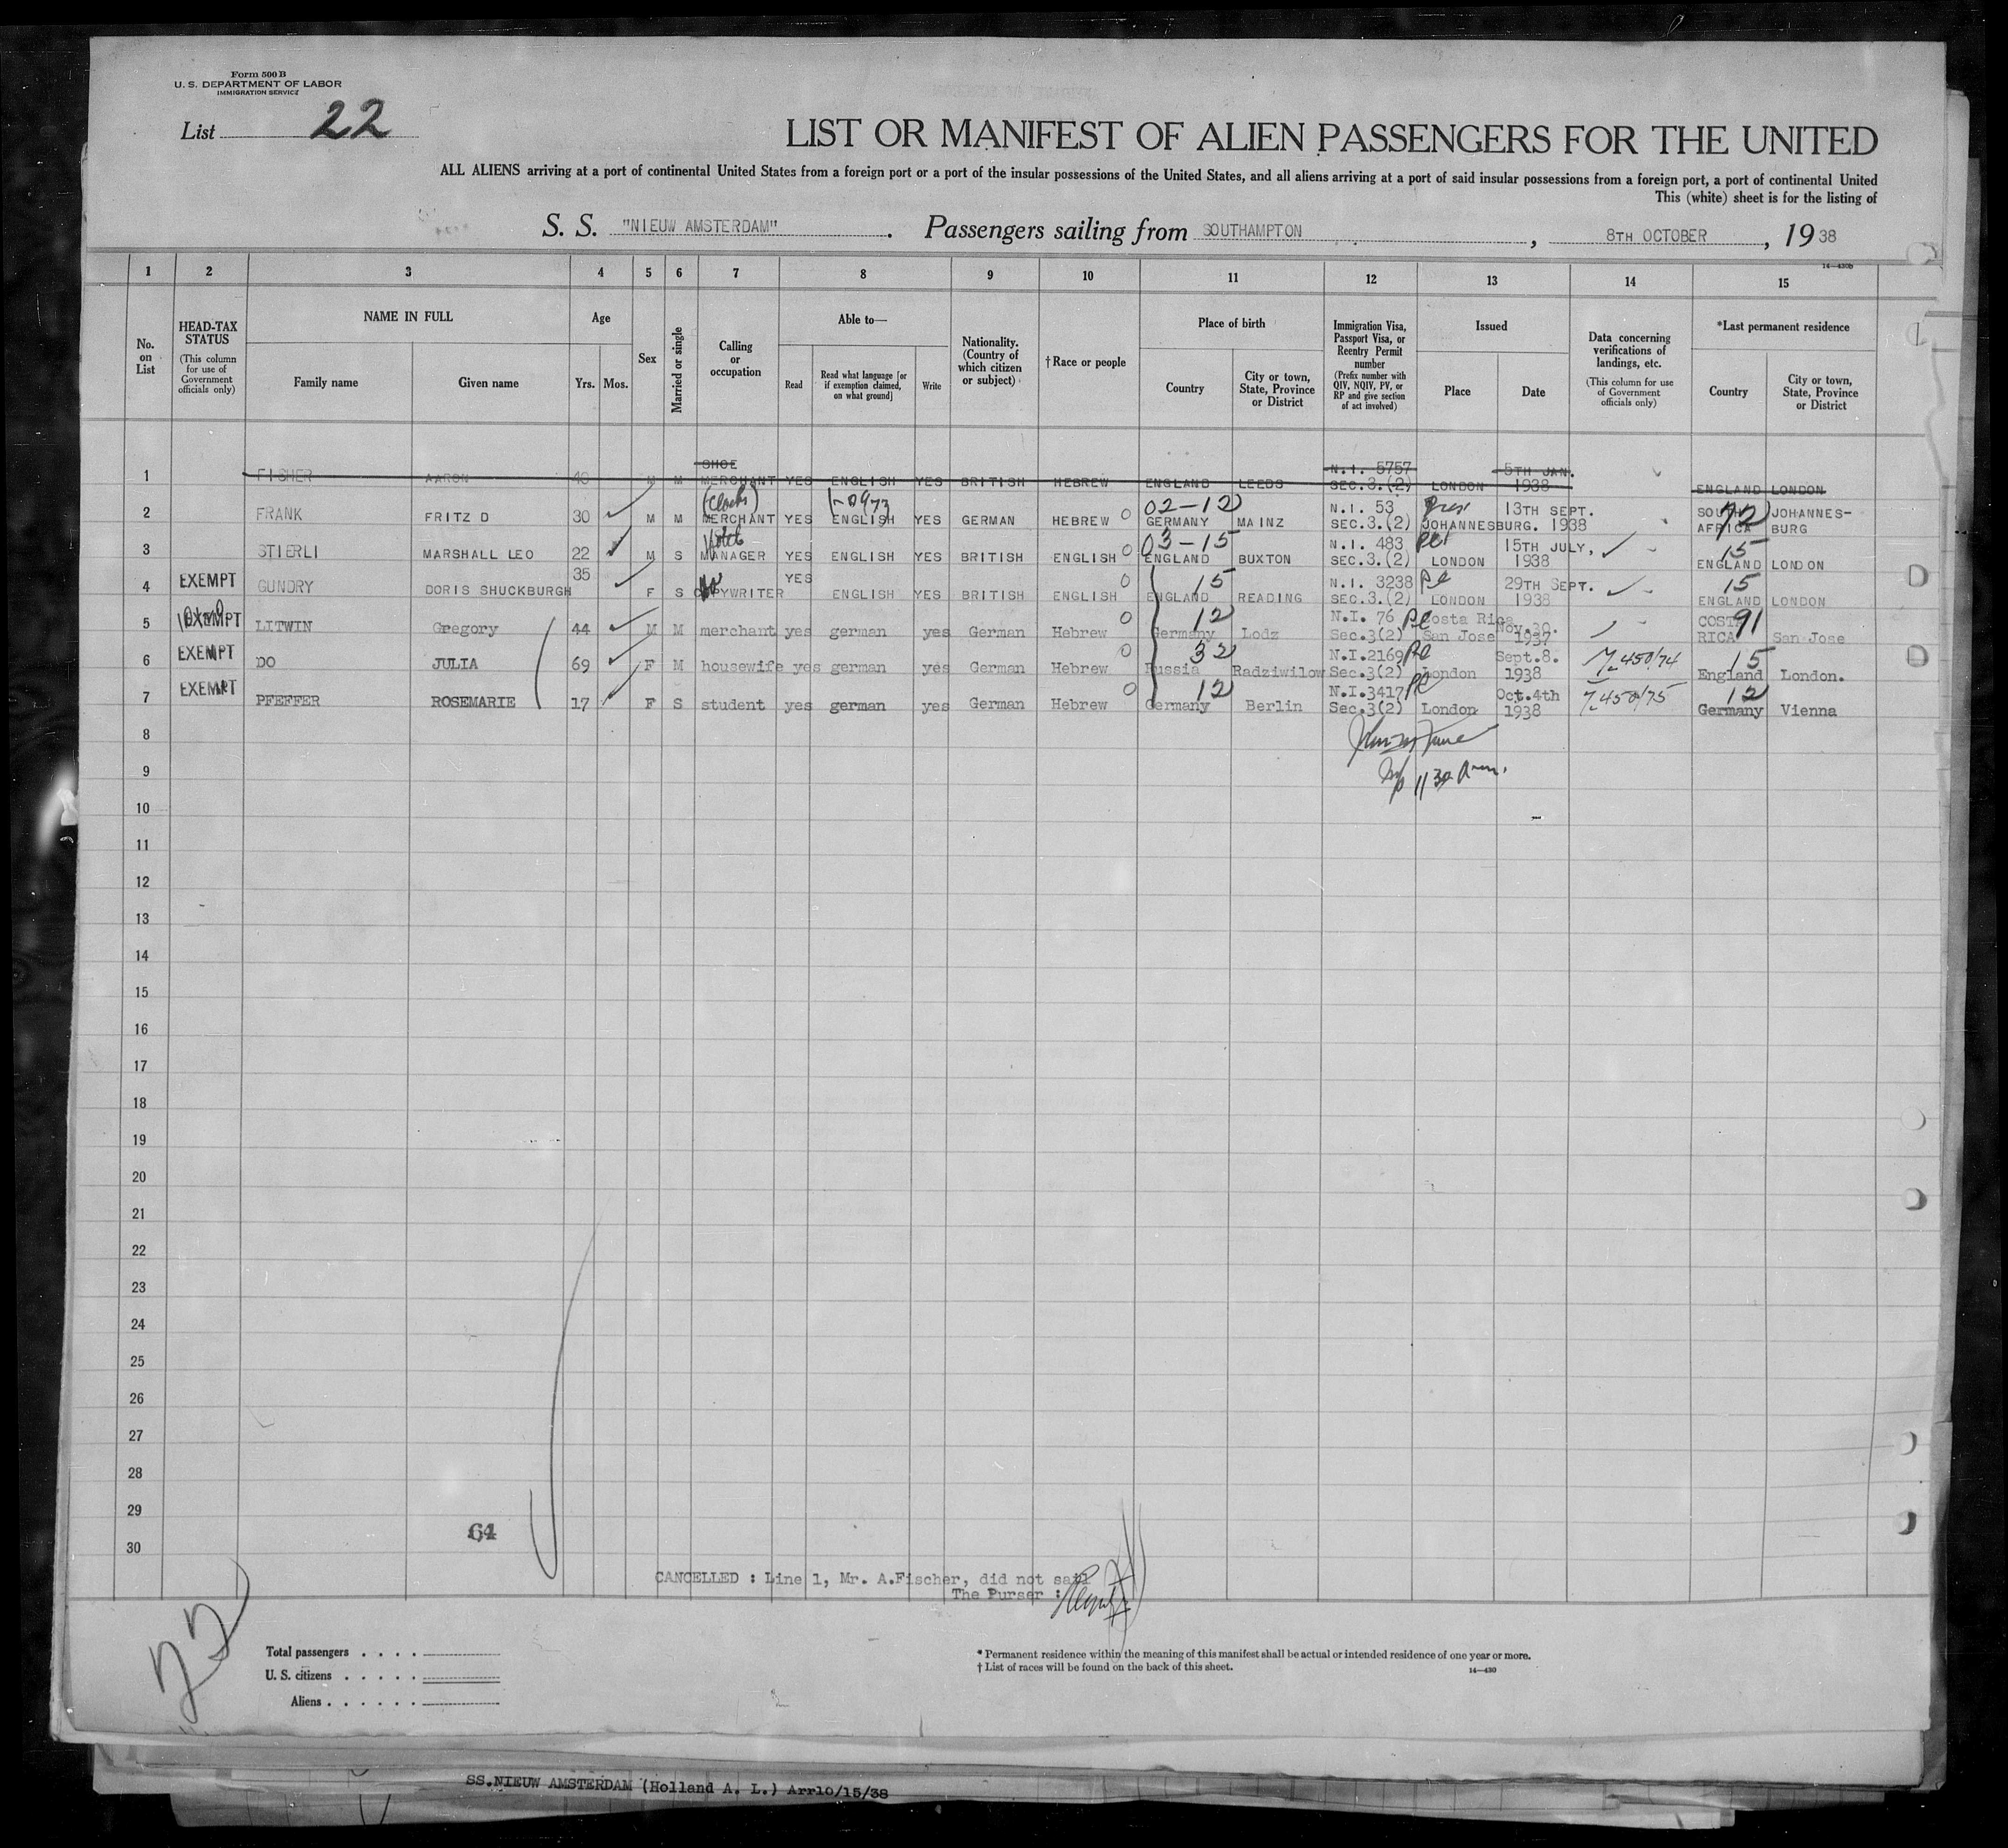 Form 500 B
U. S. DEPARTMENT OF LABOR
IMMIGRATION SERVICE
List 22
LIST OR MANIFEST OF ALIEN PASSENGERS FOR THE UNITED
ALL ALIENS arriving at a port of continental United States from a foreign port or a port of the insular possessions of the United States, and all aliens arriving at a port of said insular possessions from a foreign port, a port of continental United
This (white) sheet is for the listing of
S. S. "NIEUW AMSTERDAM". Passengers sailing from SOUTHAMPTON, 8TH OCTOBER, 1938
14—430b
1 2 3 4 5 6 7 8 9 10 11 12 13 14 15
No. on List
HEAD-TAX STATUS (This column for use of Government officials only)
NAME IN FULL
Family name
Given name
Age
Yrs. Mos.
Sex
Married or single
Calling or occupation
Able to—
Read
Read what language [or if exemption claimed, on what ground]
Write
Nationality. (Country of which citizen or subject)
† Race or people
Place of birth
Country
City or town, State, Province or District
Immigration Visa, Passport Visa, or Reentry Permit number (Prefix number with QIV, NQIV, PV, or RP and give section of act involved)
Issued
Place
Date
Data concerning verifications of landings, etc. (This column for use of Government officials only)
*Last permanent residence
Country
City or town, State, Province or District
1 FISHER AARON 40 M M SHOE MERCHANT YES ENGLISH YES BRITISH HEBREW ENGLAND LEEDS N.I. 5757 SEC.3.(2) LONDON 5TH JAN. 1938 ENGLAND LONDON
2 FRANK FRITZ D 30 M M MERCHANT YES ENGLISH YES GERMAN HEBREW 0 02-12 GERMANY MAINZ N.I. 53 SEC.3.(2) JOHANNESBURG. 13TH SEPT. 1938 SOUTH AFRICA 72 JOHANNES-BURG
3 STIERLI MARSHALL LEO 22 M S Hotel MANAGER YES ENGLISH YES BRITISH ENGLISH 0 03-15 ENGLAND BUXTON N.I. 483 SEC.3.(2) LONDON 15TH JULY, 1938 15 ENGLAND LONDON
4 EXEMPT GUNDRY DORIS SHUCKBURGH 35 F S COPYWRITER YES ENGLISH YES BRITISH ENGLISH 0 15 ENGLAND READING N.I. 3238 SEC.3.(2) LONDON 29TH SEPT. 1938 15 ENGLAND LONDON
5 EXEMPT LITWIN Gregory 44 M M merchant yes german yes German Hebrew 0 12 Germany Lodz N.I. 76 Sec.3(2) Costa Rica San Jose Nov.30. 1937 COSTA RICA 91 San Jose
6 EXEMPT DO JULIA 69 F M housewife yes german yes German Hebrew 0 32 Russia Radziwilow N.I.2169 Sec.3(2) London Sept.8. 1938 450/74 15 England London.
7 EXEMPT PFEFFER ROSEMARIE 17 F S student yes german yes German Hebrew 0 12 Germany Berlin N.I.3417 Sec.3(2) London Oct.4th 1938 450/75 12 Germany Vienna
8
9
11 30 Am.
10
11
12
13
14
15
16
17
18
19
20
21
22
23
24
25
26
27
28
29
30
64
CANCELLED : Line 1, Mr. A.Fischer, did not sail
The Purser :
22
Total passengers . . . .
U. S. citizens . . . . .
Aliens . . . . . .
* Permanent residence within the meaning of this manifest shall be actual or intended residence of one year or more.
† List of races will be found on the back of this sheet.
14—430
SS.NIEUW AMSTERDAM (Holland A. L.) Arr10/15/38